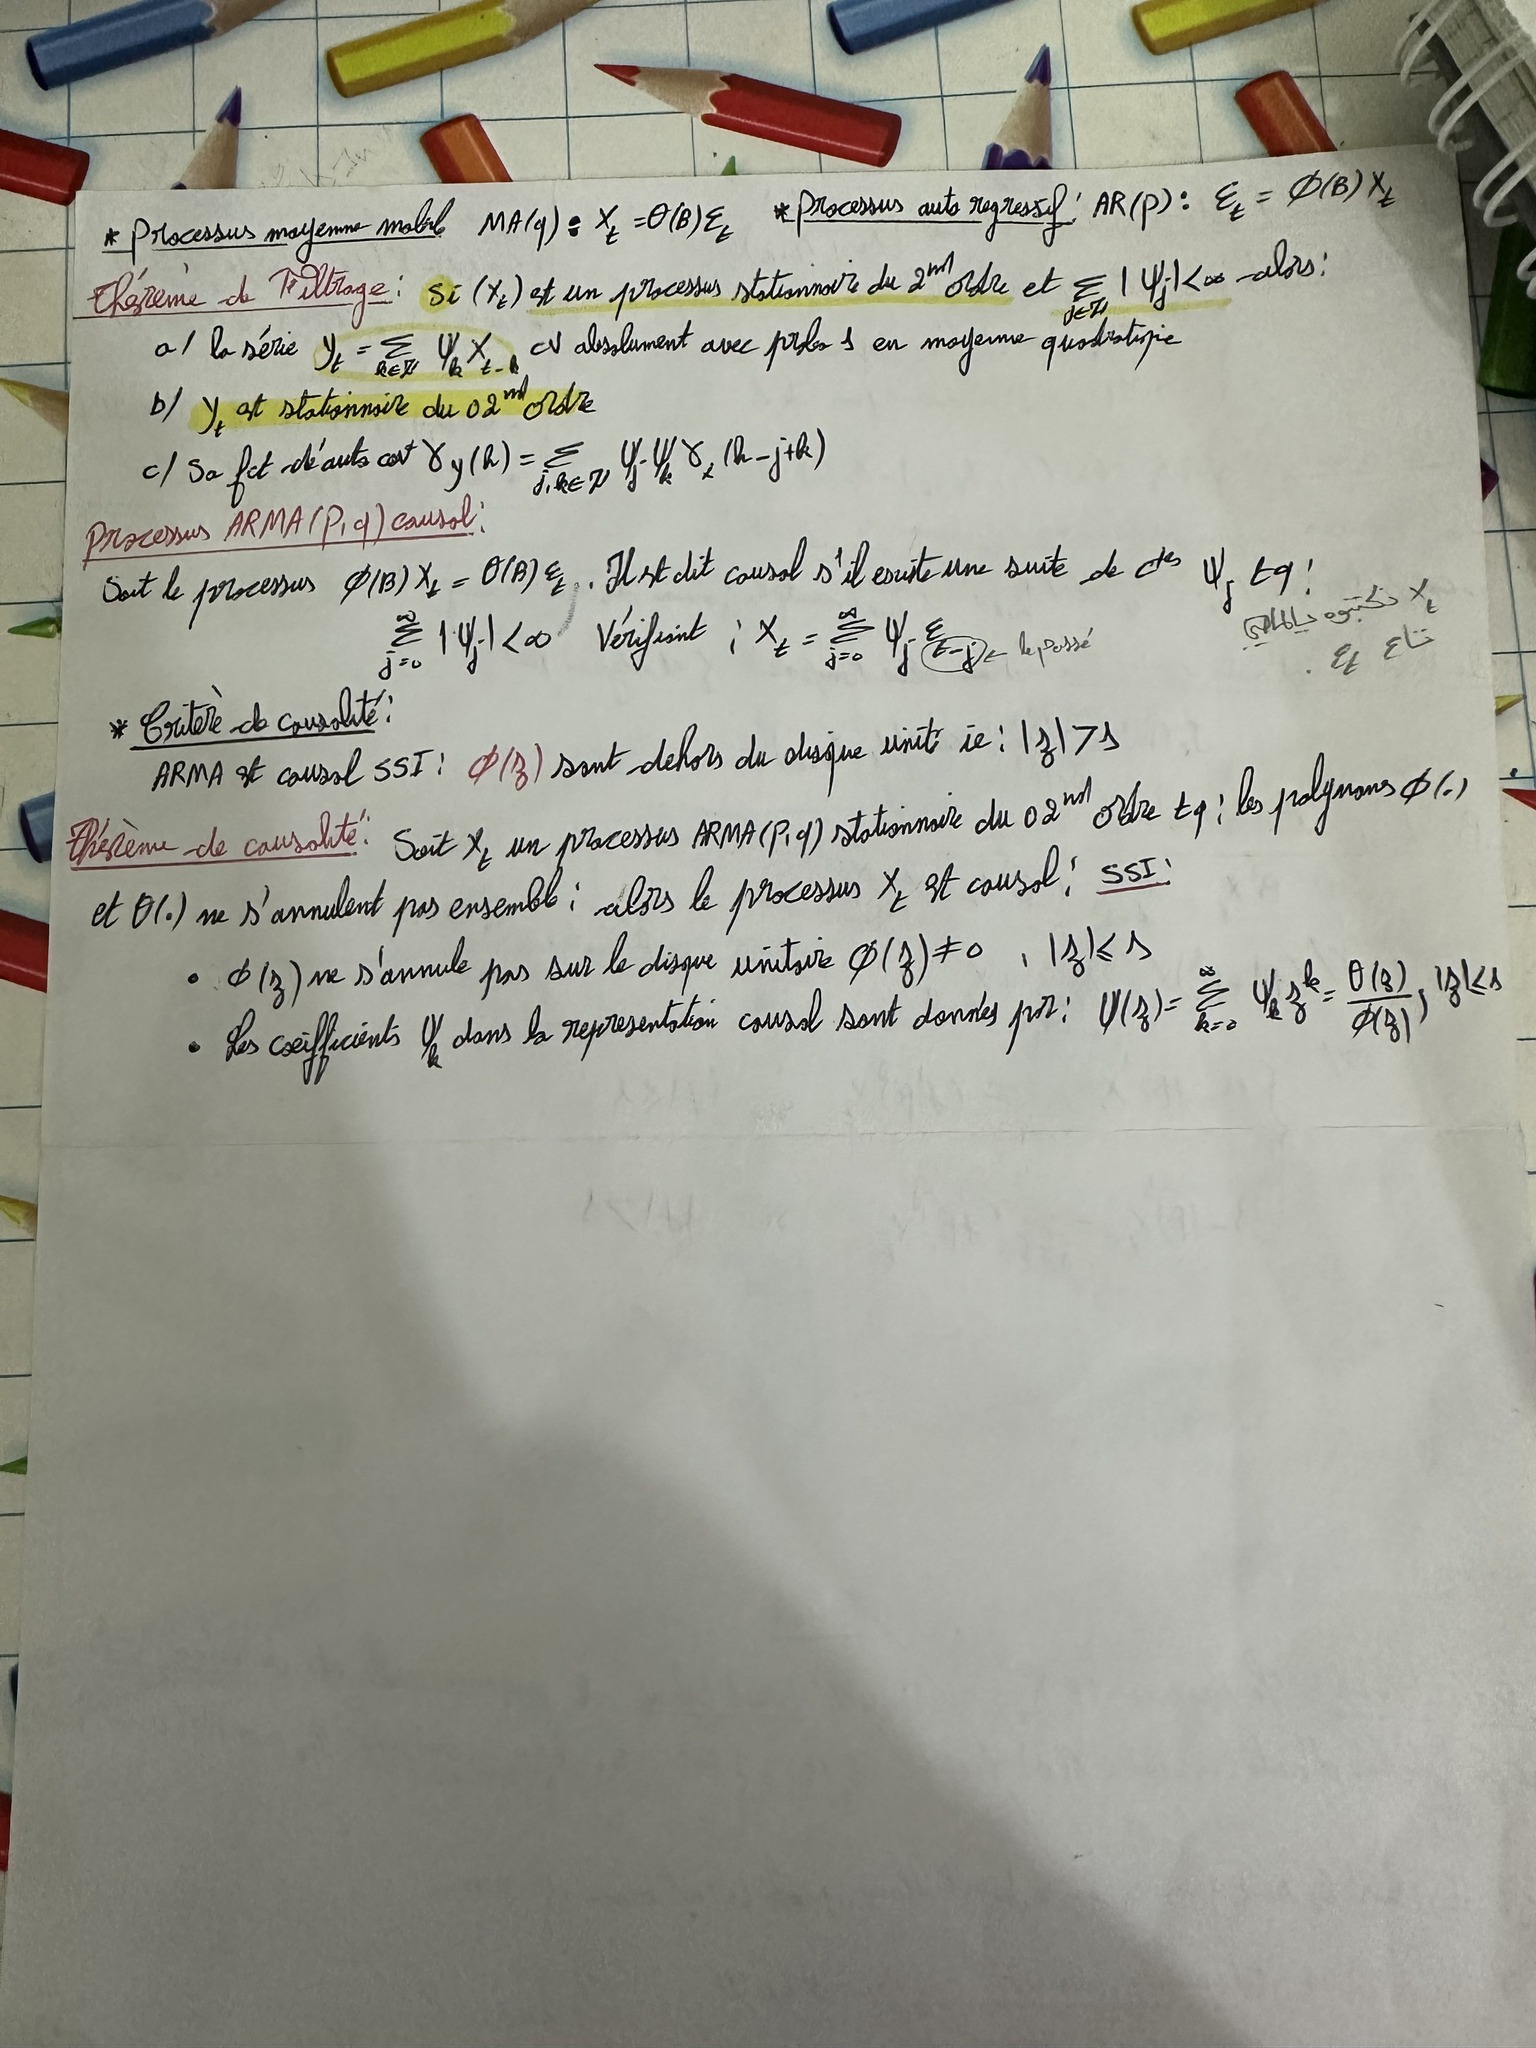 * Processus moyenne mobile MA(q) : X_t = θ(B) ε_t * Processus auto regressif : AR(p) : ε_t = Φ(B) X_t
théorème de Filtrage : Si (X_t) est un processus stationnaire du 2nd ordre et ∑_{j∈Z} |ψ_j| < ∞ alors :
a/ la série y_t = ∑_{k∈Z} ψ_k X_{t-k} CV absolument avec proba 1 en moyenne quadratique
b/ y_t est stationnaire du 02nd ordre
c/ Sa fct d'auto cov γ_y(h) = ∑_{j,k∈Z} ψ_j ψ_k γ_x (h-j+k)
Processus ARMA(p,q) causal :
Soit le processus Φ(B) X_t = θ(B) ε_t. Il est dit causal s'il existe une suite de ctes ψ_j tq :
∑_{j=0}^{∞} |ψ_j| < ∞ Vérifiant : X_t = ∑_{j=0}^{∞} ψ_j ε_{t-j} ← le passé
X_t نكتبوه بالماضي
تاع ε_t .
* Critère de causalité :
ARMA est causal SSI : Φ(z) sont dehors du disque unité ie : |z| > 1
théorème de causalité : Soit X_t un processus ARMA(p,q) stationnaire du 02nd ordre tq : les polynoms Φ(.)
et θ(.) ne s'annulent pas ensemble ; alors le processus X_t est causal ; SSI :
• Φ(z) ne s'annule pas sur le disque unitaire Φ(z) ≠ 0 , |z| ≤ 1
• Les coéifficients ψ_k dans la representation causal sont donnés par : ψ(z) = ∑_{k=0}^{∞} ψ_k z^k = θ(z)/Φ(z) ; |z| ≤ 1